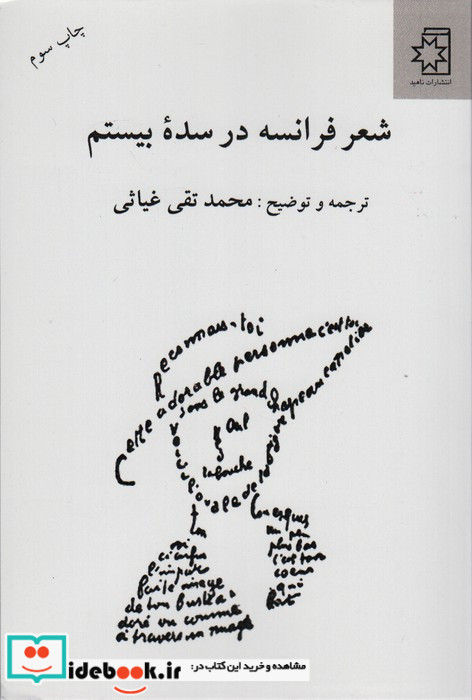 انتشارات ناهید
چاپ سوم
شعر فرانسه در سدهٔ بیستم
ترجمه و توضیح : محمد تقی غیاثی
Reconnais-toi
Cette adorable personne c'est toi
sous le grand chapeau canotier
œil
la bouche
Voici l'ovale de ta figure
Ton cou exquis
ci enfin
l'impar
faite image
de ton buste a
doré vu comme
à travers un nuage
un peu
plus bas
c'est ton
cœur
qui
bat
مشاهده و خرید این کتاب در:
idebook.ir